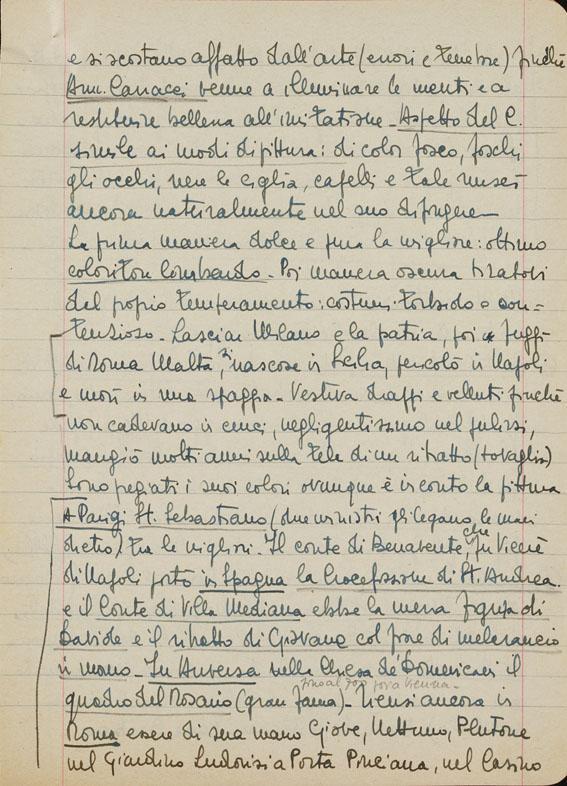 e si scostano affatto dall'arte (errori e tenebre) finchè
Ann. Carracci venne a illuminare le menti e a
restituire bellezza all'imitazione - Aspetto del C.
simile ai modi di pittura: di color fosco, foschi
gli occhi, nere le ciglia, capelli e tale riuscì
ancora naturalmente nel suo dipingere -
La prima maniera dolce e pura la migliore: ottimo
coloritore lombardo - Poi maniera oscura tiratovi
del proprio temperamento: costumi torbido e con-
tenzioso - Lasciar Milano e la patria, poi fuggì
di Roma e Malta, si nascose in Sicilia, pericolò in Napoli
e morì in una spiaggia - Vestiva drappi e velluti finchè
non cadevano in cenci, negligentissimo nel pulirsi,
mangiò molti anni sulla tela di un ritratto (tovaglia)
Sono pregiati i suoi colori ovunque è in conto la pittura
A Parigi St. Sebastiano (due ministri gli legano le mani
dietro) tra le migliori. Il conte di Benavente, che fu Vicerè
di Napoli portò in Spagna la Crocefissione di St. Andrea.
e il Conte di Villa Mediana ebbe la mezza figura di
Davide e il ritratto di Giovane col fiore di melarancio
in mano - In Anversa nella Chiesa de' Domenicani il
quadro del Rosario (gran fama) - Tiensi ancora in
Roma essere di sua mano Giove, Nettuno, Plutone
nel Giardino Ludovisi a Porta Pinciana, nel Casino